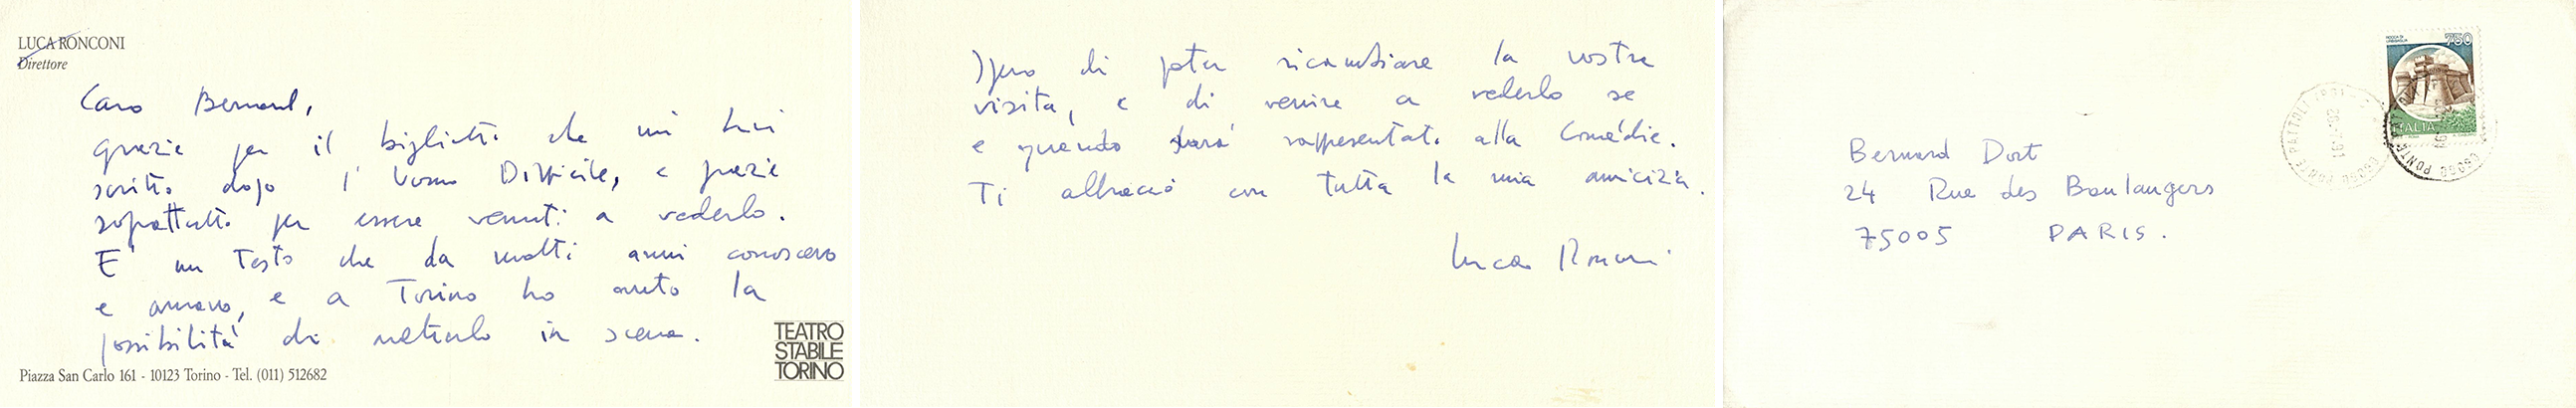 LUCA RONCONI
Direttore
Caro Bernard,
grazie per il biglietto che mi hai
scritto dopo l'Uomo Difficile, e grazie
soprattutto per essere venuti a vederlo.
E' un Testo che da molti anni conoscevo
e amavo, e a Torino ho avuto la
possibilità di metterlo in scena.
Piazza San Carlo 161 - 10123 Torino - Tel. (011) 512682
TEATRO
STABILE
TORINO
Spero di poter ricambiare la vostra
visita, e di venire a vederlo se
e quando sarà rappresentato alla Comédie.
Ti abbraccio con tutta la mia amicizia.
Luca Ronconi
750
ITALIA
Bernard Dort
24 Rue des Boulangers
75005 PARIS.